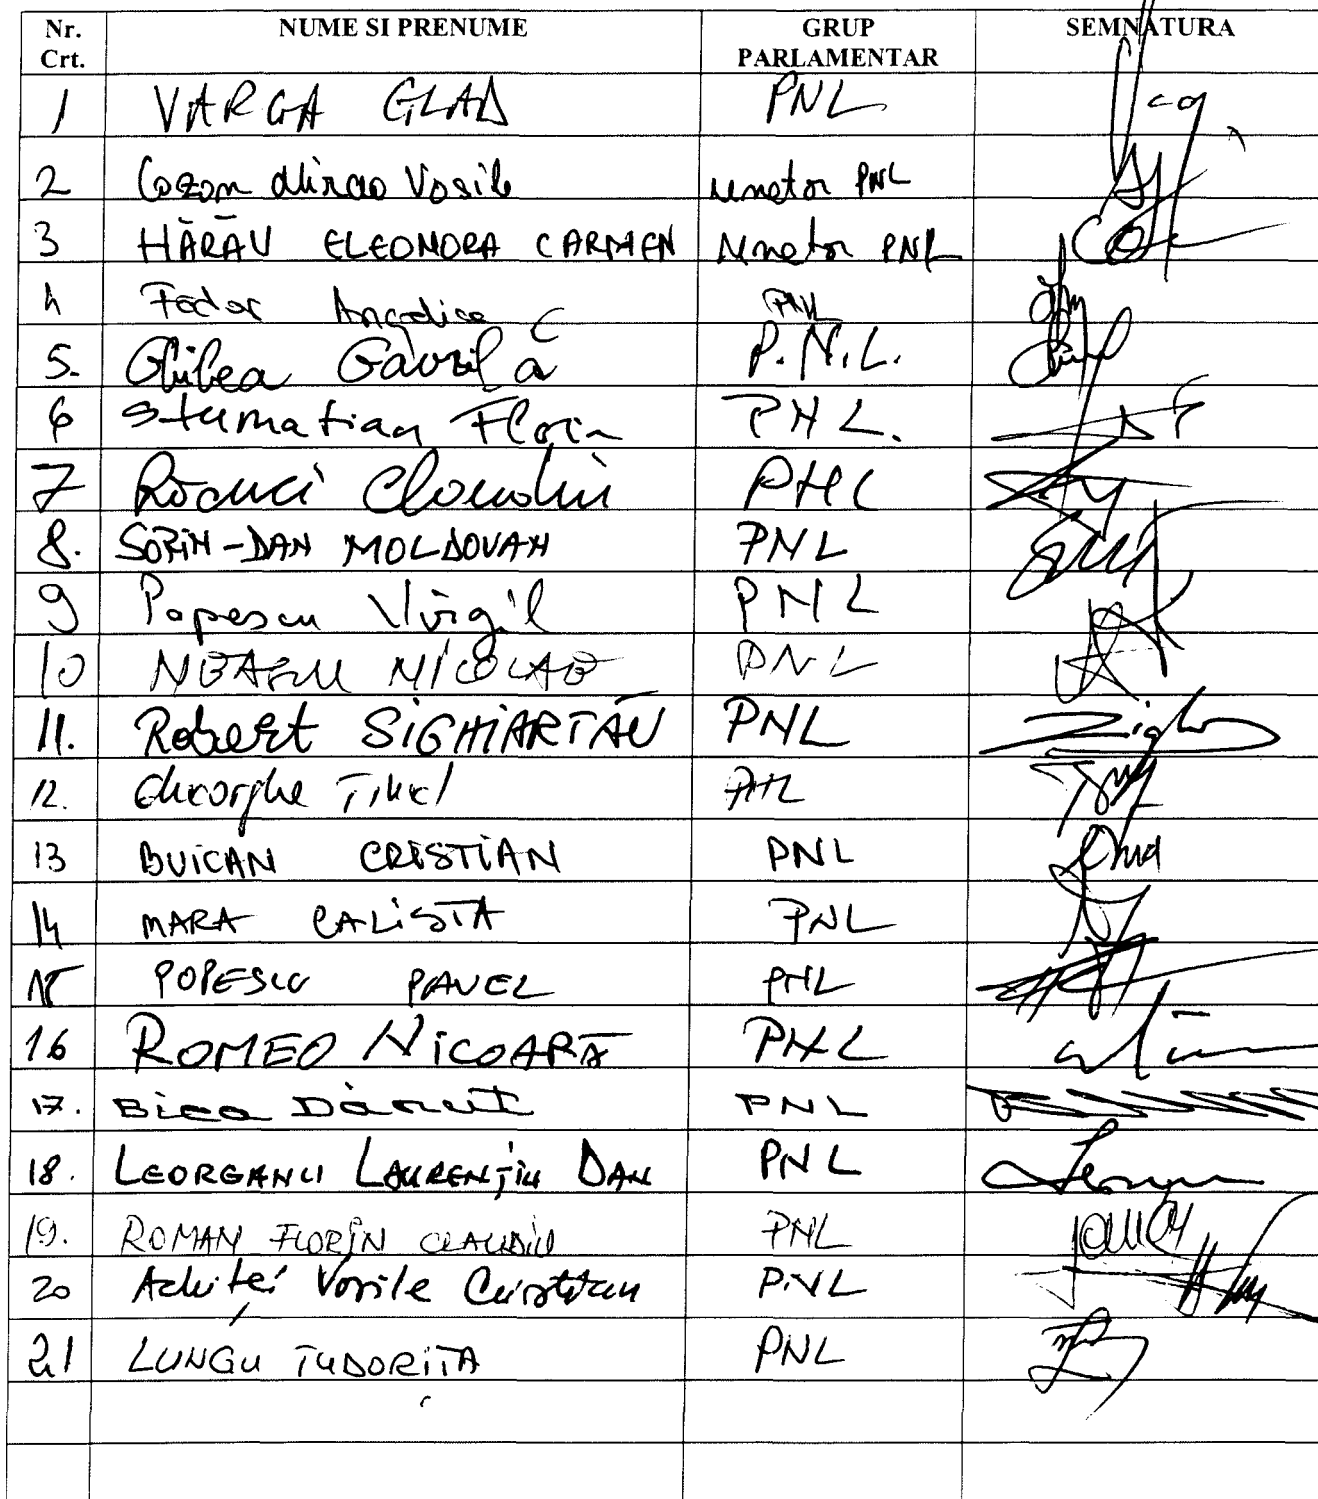 Nr. Crt. NUME SI PRENUME GRUP PARLAMENTAR SEMNATURA
1 VARGA GLAD PNL
2 Cazan Mircea Vasile senator PNL
3 HĂRĂU ELEONORA CARMEN senator PNL
4 Fădor Angelica PNL
5. Ghilea Găvrilă P.N.L.
6 Stamatian Florin PNL.
7 Răcuci Claudiu PNL
8. SORIN-DAN MOLDOVAN PNL
9 Popescu Virgil PNL
10 NEAGU NICOLAE PNL
11. Robert SIGHIARTĂU PNL
12. Gheorghe Tinel PNL
13 BUICAN CRISTIAN PNL
14 MARA CALISTA PNL
15 POPESCU PAVEL PNL
16 ROMEO NICOARĂ PNL
17. Bica Dănuț PNL
18. LEOREANU LAURENȚIU DAN PNL
19. ROMAN FLORIN CLAUDIU PNL
20 Achiței Vasile Cristian PNL
21 LUNGU TUDORIȚA PNL